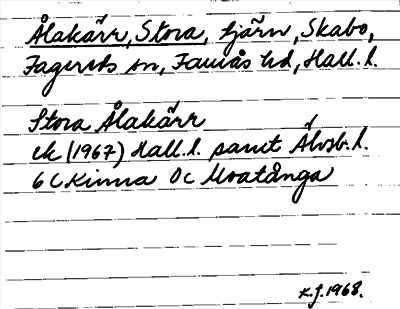 Ålakärr, Stora, tjärn, Skabo,
Fagereds sn, Faurås hd, Hall. l.
Stora Ålakärr
ek (1967) Hall. l. samt Älvsb. l.
6C Kinna 0c Moatånga
K.J. 1968.